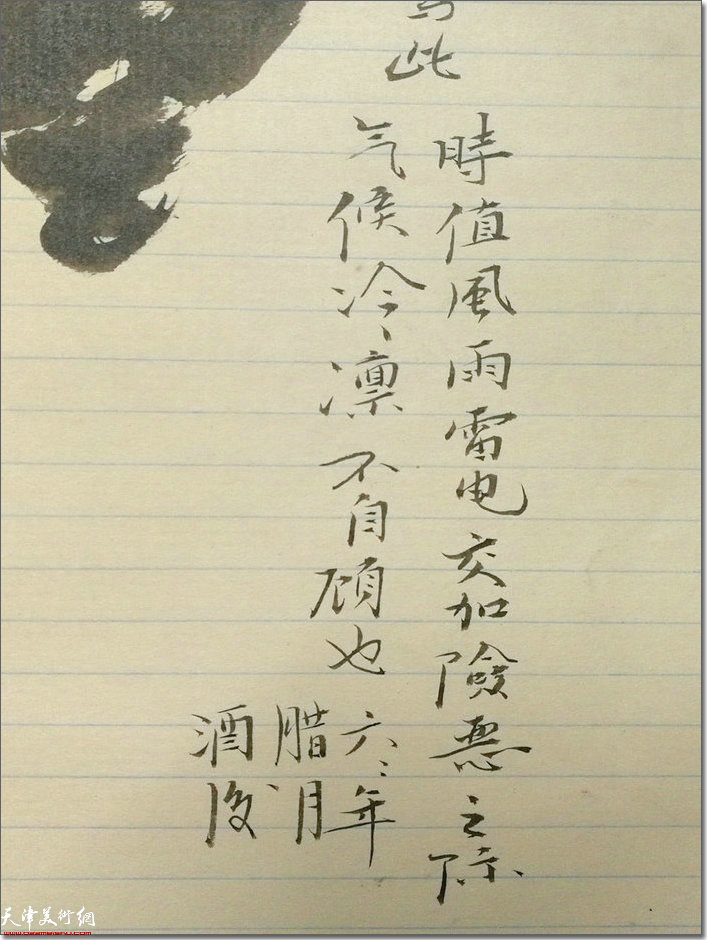 此
時值風雨雷电交加險惡之际
气候冷凛不自顾也
六六年
腊月
酒后
天津美術網